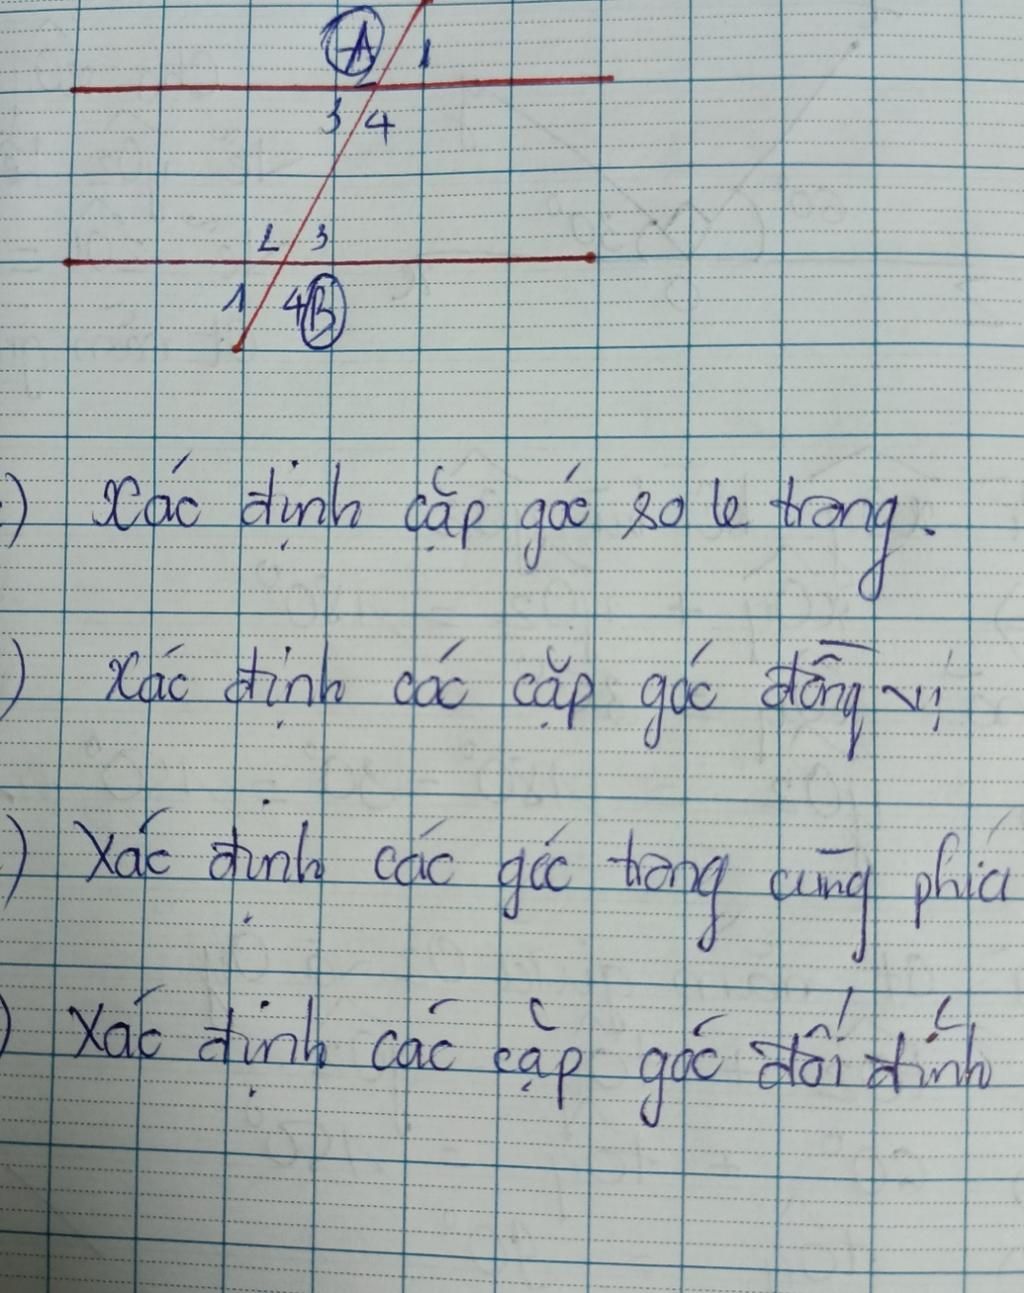 A 1
2
3 4
2 3
1 4 B
) Xác định cặp góc so le trong.
) Xác định các cặp góc đồng vị
) Xác định các góc trong cùng phía
) Xác định các cặp góc đối đỉnh